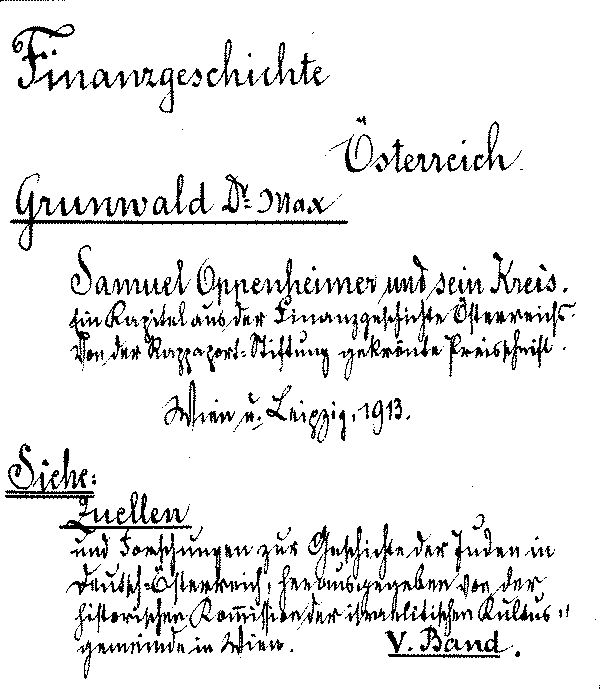 Finanzgeschichte
Österreich
Grunwald Dr. Max
Samuel Oppenheimer und sein Kreis.
Ein Kapitel aus der Finanzgeschichte Österreichs.
Von der Rappaport-Stiftung gekrönte Preisschrift.
Wien u. Leipzig, 1913.
Siehe:
Quellen
und Forschungen zur Geschichte der Juden in
Deutsch-Österreich, herausgegeben von der
historischen Kommission der israelitischen Kultus-
gemeinde in Wien. V. Band.